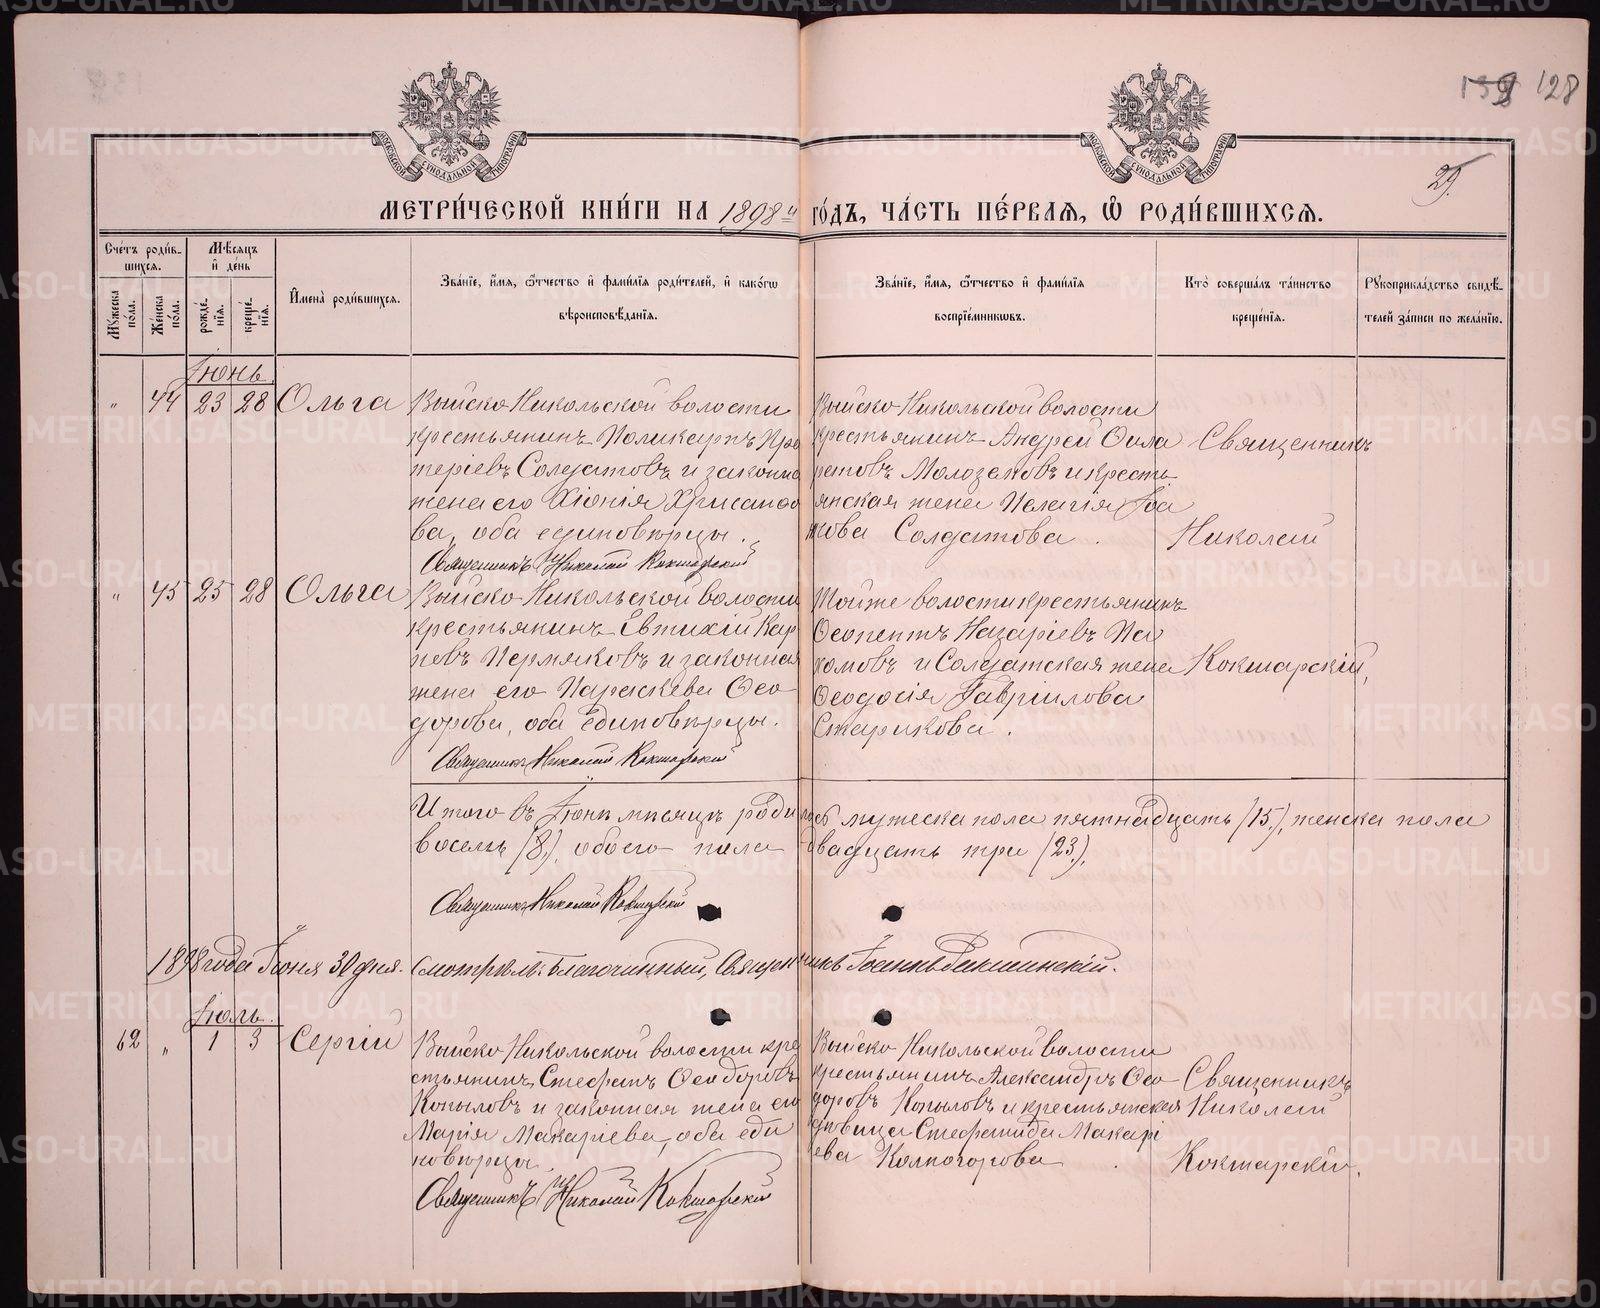 139 128
29.
МЕТРИЧЕСКОЙ КНИГИ НА 1898й ГОДЪ, ЧАСТЬ ПЕРВАЯ, Ѡ РОДИВШИХСЯ.
Счетъ родив-
шихся.
Мѣсяцъ
и день
Мужеска
пола.
Женска
пола.
рожде-
нія.
креще-
нія.
Имена родившихся.
Званіе, имя, ѿчество и фамилія родителей, и какогѡ
вѣроисповѣданія.
Званіе, имя, ѿчество и фамилія
воспріемникѡвъ.
Кто совершалъ таинство
крещенія.
Рукоприкладство свидѣ-
телей записи по желанію.
Іюнь.
" 44 23 28 Ольга
Выйско Никольской волости
крестьянинъ Поликарпъ Про
теріевъ Солдатовъ и законна
жена его Хіонія Хрисанѳо
ва, оба единовѣрцы.
Священникъ Николай Кокшарскій
Выйско Никольской волости
крестьянинъ Андрей Фила
ретовъ Молозаковъ и кресть-
янская жена Пелагія Іоа
кова Солдатова.
Священникъ
Николай
" 45 25 28 Ольга
Выйско Никольской волости
крестьянинъ Евтихій Кар
повъ Пермяковъ и законная
жена его Параскева Ѳео-
дорова, оба единовѣрцы.
Священникъ Николай Кокшарскій
Той же волости крестьянинъ
Ѳеопентъ Назаріевъ Па
хомовъ и Солдатская жена
Ѳеодосія Гавріилова
Старикова.
Кокшарскій,
Итого въ Іюнѣ мѣсяцѣ родилось мужеска пола пятнадцать /15./, женска пола
восемь /8./, обоего пола двадцать три /23./,
Священникъ Николай Кокшарскій
1898 года Іюня 30 дня. Смотрѣлъ: Благочинный, Священникъ Іоаннъ
Іюль.
62 " 1 3 Сергій
Выйско Никольской волости кре
стьянинъ Стефанъ Ѳеодоровъ
Копыловъ и законная жена его
Марія Макаріева, оба еди
новѣрцы.
Священникъ Николай Кокшарскій
Выйско Никольской волости
крестьянинъ Александръ Ѳео-
доровъ Копыловъ и крестьянская
дѣвица Стефанида Макарі
ева Колногорова.
Священникъ
Николай
Кокшарскій.
METRIKI.GASO-URAL.RU